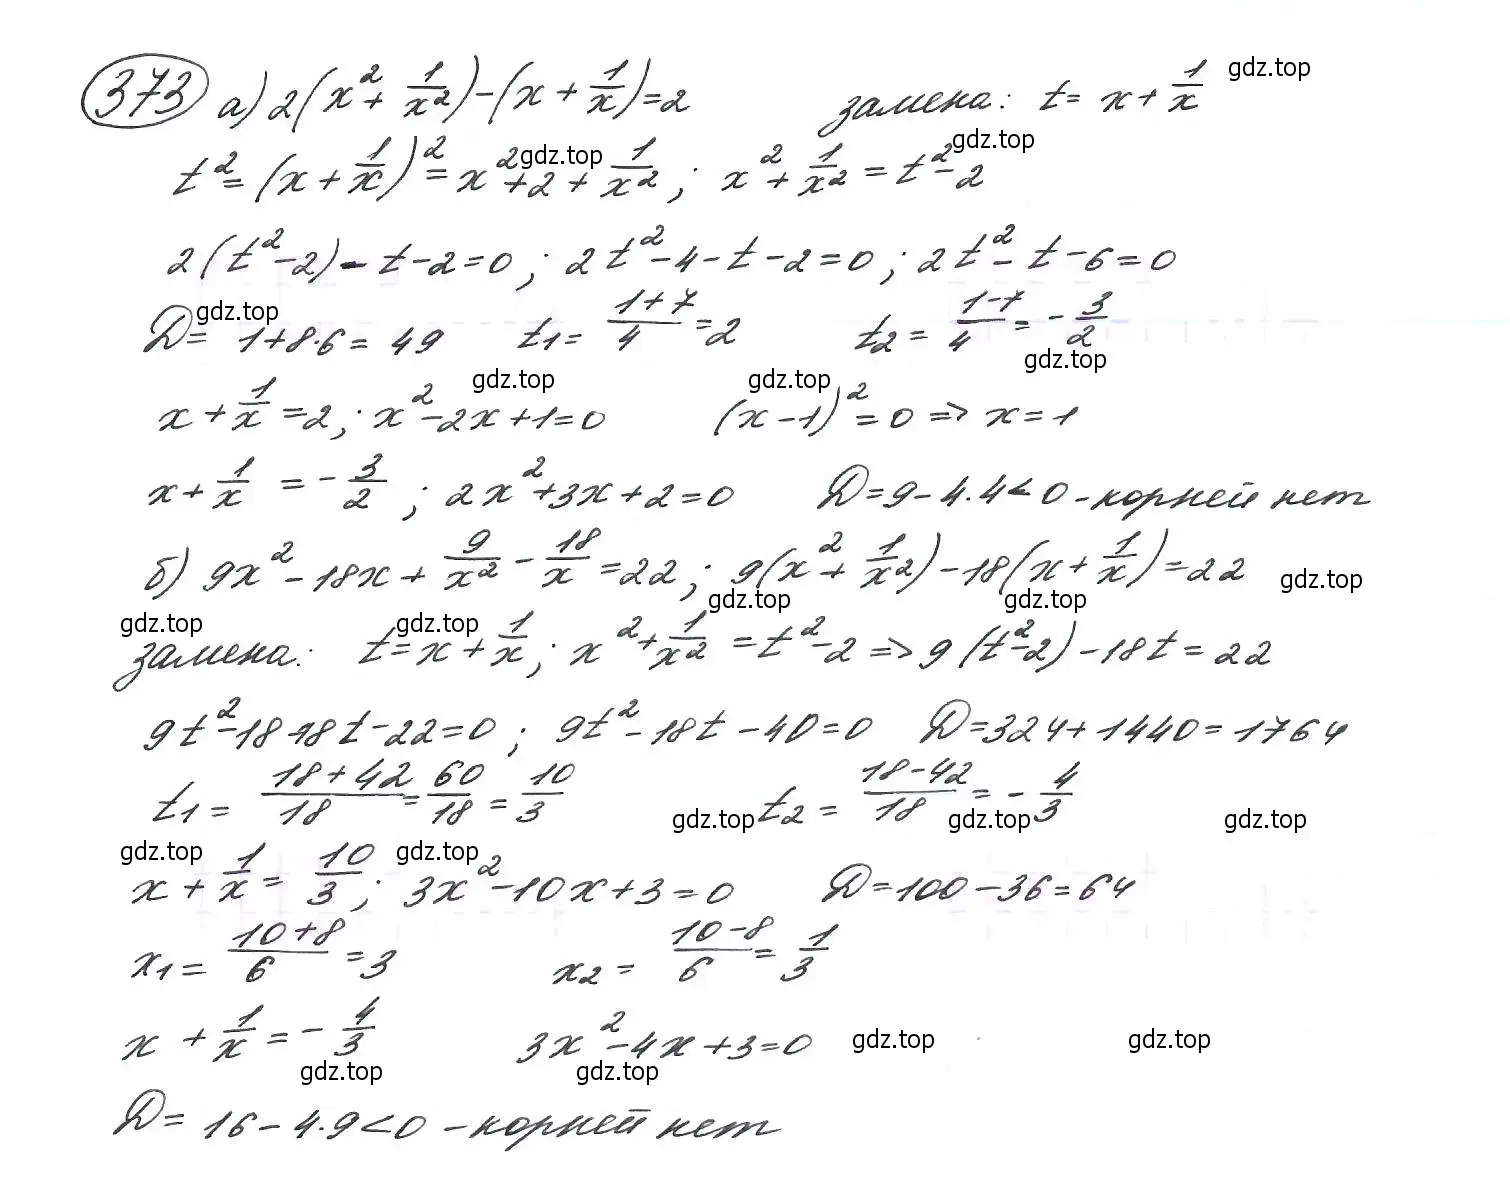 373 а) 2(x² + 1/x²) - (x + 1/x) = 2 замена: t = x + 1/x gdz.top
t² = (x + 1/x)² = x² + 2 + 1/x²; x² + 1/x² = t² - 2 gdz.top gdz.top
2(t² - 2) - t - 2 = 0; 2t² - 4 - t - 2 = 0; 2t² - t - 6 = 0
D = 1 + 8·6 = 49 t1 = (1+7)/4 = 2 t2 = (1-7)/4 = -3/2 gdz.top gdz.top
x + 1/x = 2; x² - 2x + 1 = 0 (x - 1)² = 0 => x = 1 gdz.top gdz.top
x + 1/x = -3/2; 2x² + 3x + 2 = 0 D = 9 - 4·4 < 0 - корней нет
б) 9x² - 18x + 9/x² - 18/x = 22; 9(x² + 1/x²) - 18(x + 1/x) = 22 gdz.top gdz.top gdz.top
замена: t = x + 1/x; x² + 1/x² = t² - 2 => 9(t² - 2) - 18t = 22 gdz.top gdz.top
9t² - 18 - 18t - 22 = 0; 9t² - 18t - 40 = 0 D = 324 + 1440 = 1764
t1 = (18+42)/18 = 60/18 = 10/3 t2 = (18-42)/18 = -4/3 gdz.top gdz.top gdz.top
x + 1/x = 10/3; 3x² - 10x + 3 = 0 D = 100 - 36 = 64 gdz.top gdz.top
x1 = (10+8)/6 = 3 x2 = (10-8)/6 = 1/3
x + 1/x = -4/3 3x² - 4x + 3 = 0 gdz.top gdz.top gdz.top gdz.top
D = 16 - 4·9 < 0 - корней нет